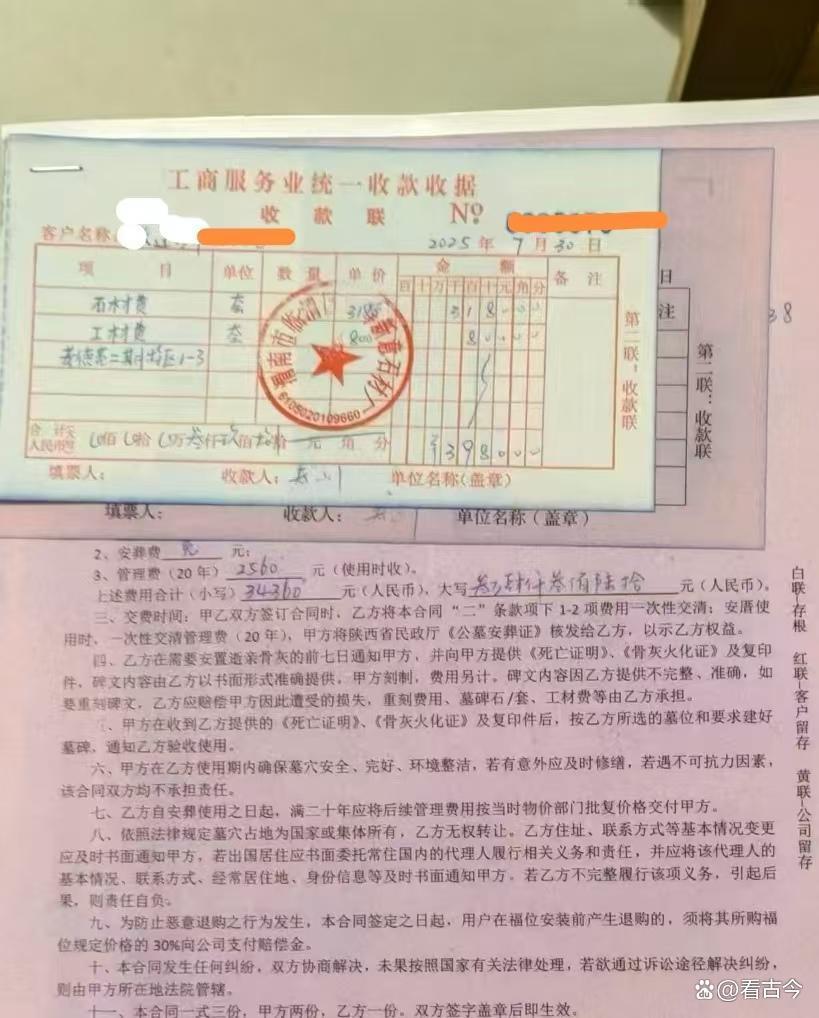 工商服务业统一收款收据
收 款 联 №
客户名称 2025 年 7 月 30 日
项 目 单位 数 量 单 价 金 额 备 注
百 十 万 千 百 十 元 角 分
石材费 套 3180 3 1 8 0 0 0
工材费 套 800 8 0 0 0 0
二期 区1-3
合 计 人民币 佰 拾 万 叁仟玖佰 拾 元 角 分 ¥ 3 9 8 0 0 0
填票人: 收款人: 单位名称(盖章)
第二联:收款联
渭南市临渭 石材厂
6105020109660
日
注
38
第二联:收款联
填票人: 收款人: 单位名称(盖章)
2、安葬费 免 元;
3、管理费(20 年) 2560 元(使用时收)。
上述费用合计(小写) 34360 元(人民币),大写 叁万肆仟叁佰陆拾 元(人民币)。
三、交费时间:甲乙双方签订合同时,乙方将本合同“二”条款项下 1-2 项费用一次性交清;安厝使
用时、一次性交清管理费(20 年),甲方将陕西省民政厅《公墓安葬证》核发给乙方,以示乙方权益。
四、乙方在需要安置适亲骨灰的前七日通知甲方,并向甲方提供《死亡证明》、《骨灰火化证》及复印
件,碑文内容由乙方以书面形式准确提供,甲方刻制,费用另计。碑文内容因乙方提供不完整、准确,如
要重刻碑文,乙方应赔偿甲方因此遭受的损失,重刻费用、墓碑石/套、工材费等由乙方承担。
、甲方在收到乙方提供的《死亡证明》、《骨灰火化证》及复印件后,按乙方所选的墓位和要求建好
墓碑,通知乙方验收使用。
六、甲方在乙方使用期内确保墓穴安全、完好、环境整洁,若有意外应及时修缮,若遇不可抗力因素,
该合同双方均不承担责任。
七、乙方自安葬使用之日起,满二十年应将后续管理费用按当时物价部门批复价格交付甲方。
八、依照法律规定墓穴占地为国家或集体所有,乙方无权转让。乙方住址、联系方式等基本情况变更
应及时书面通知甲方,若出国居住应书面委托常住国内的代理人履行相关义务和责任,并应将该代理人的
基本情况、联系方式、经常居住地、身份信息等及时书面通知甲方。若乙方不完整履行该项义务,引起后
果,则责任自负。
九、为防止恶意退购之行为发生,本合同签定之日起,用户在福位安装前产生退购的,须将其所购福
位规定价格的 30%向公司支付赔偿金。
十、本合同发生任何纠纷,双方协商解决,未果按照国家有关法律处理,若欲通过诉讼途径解决纠纷,
则由甲方所在地法院管辖。
十一、本合同一式三份,甲方两份,乙方一份。双方签字盖章后即生效。
白联-存根 红联-客户留存 黄联-公司留存
@看古今